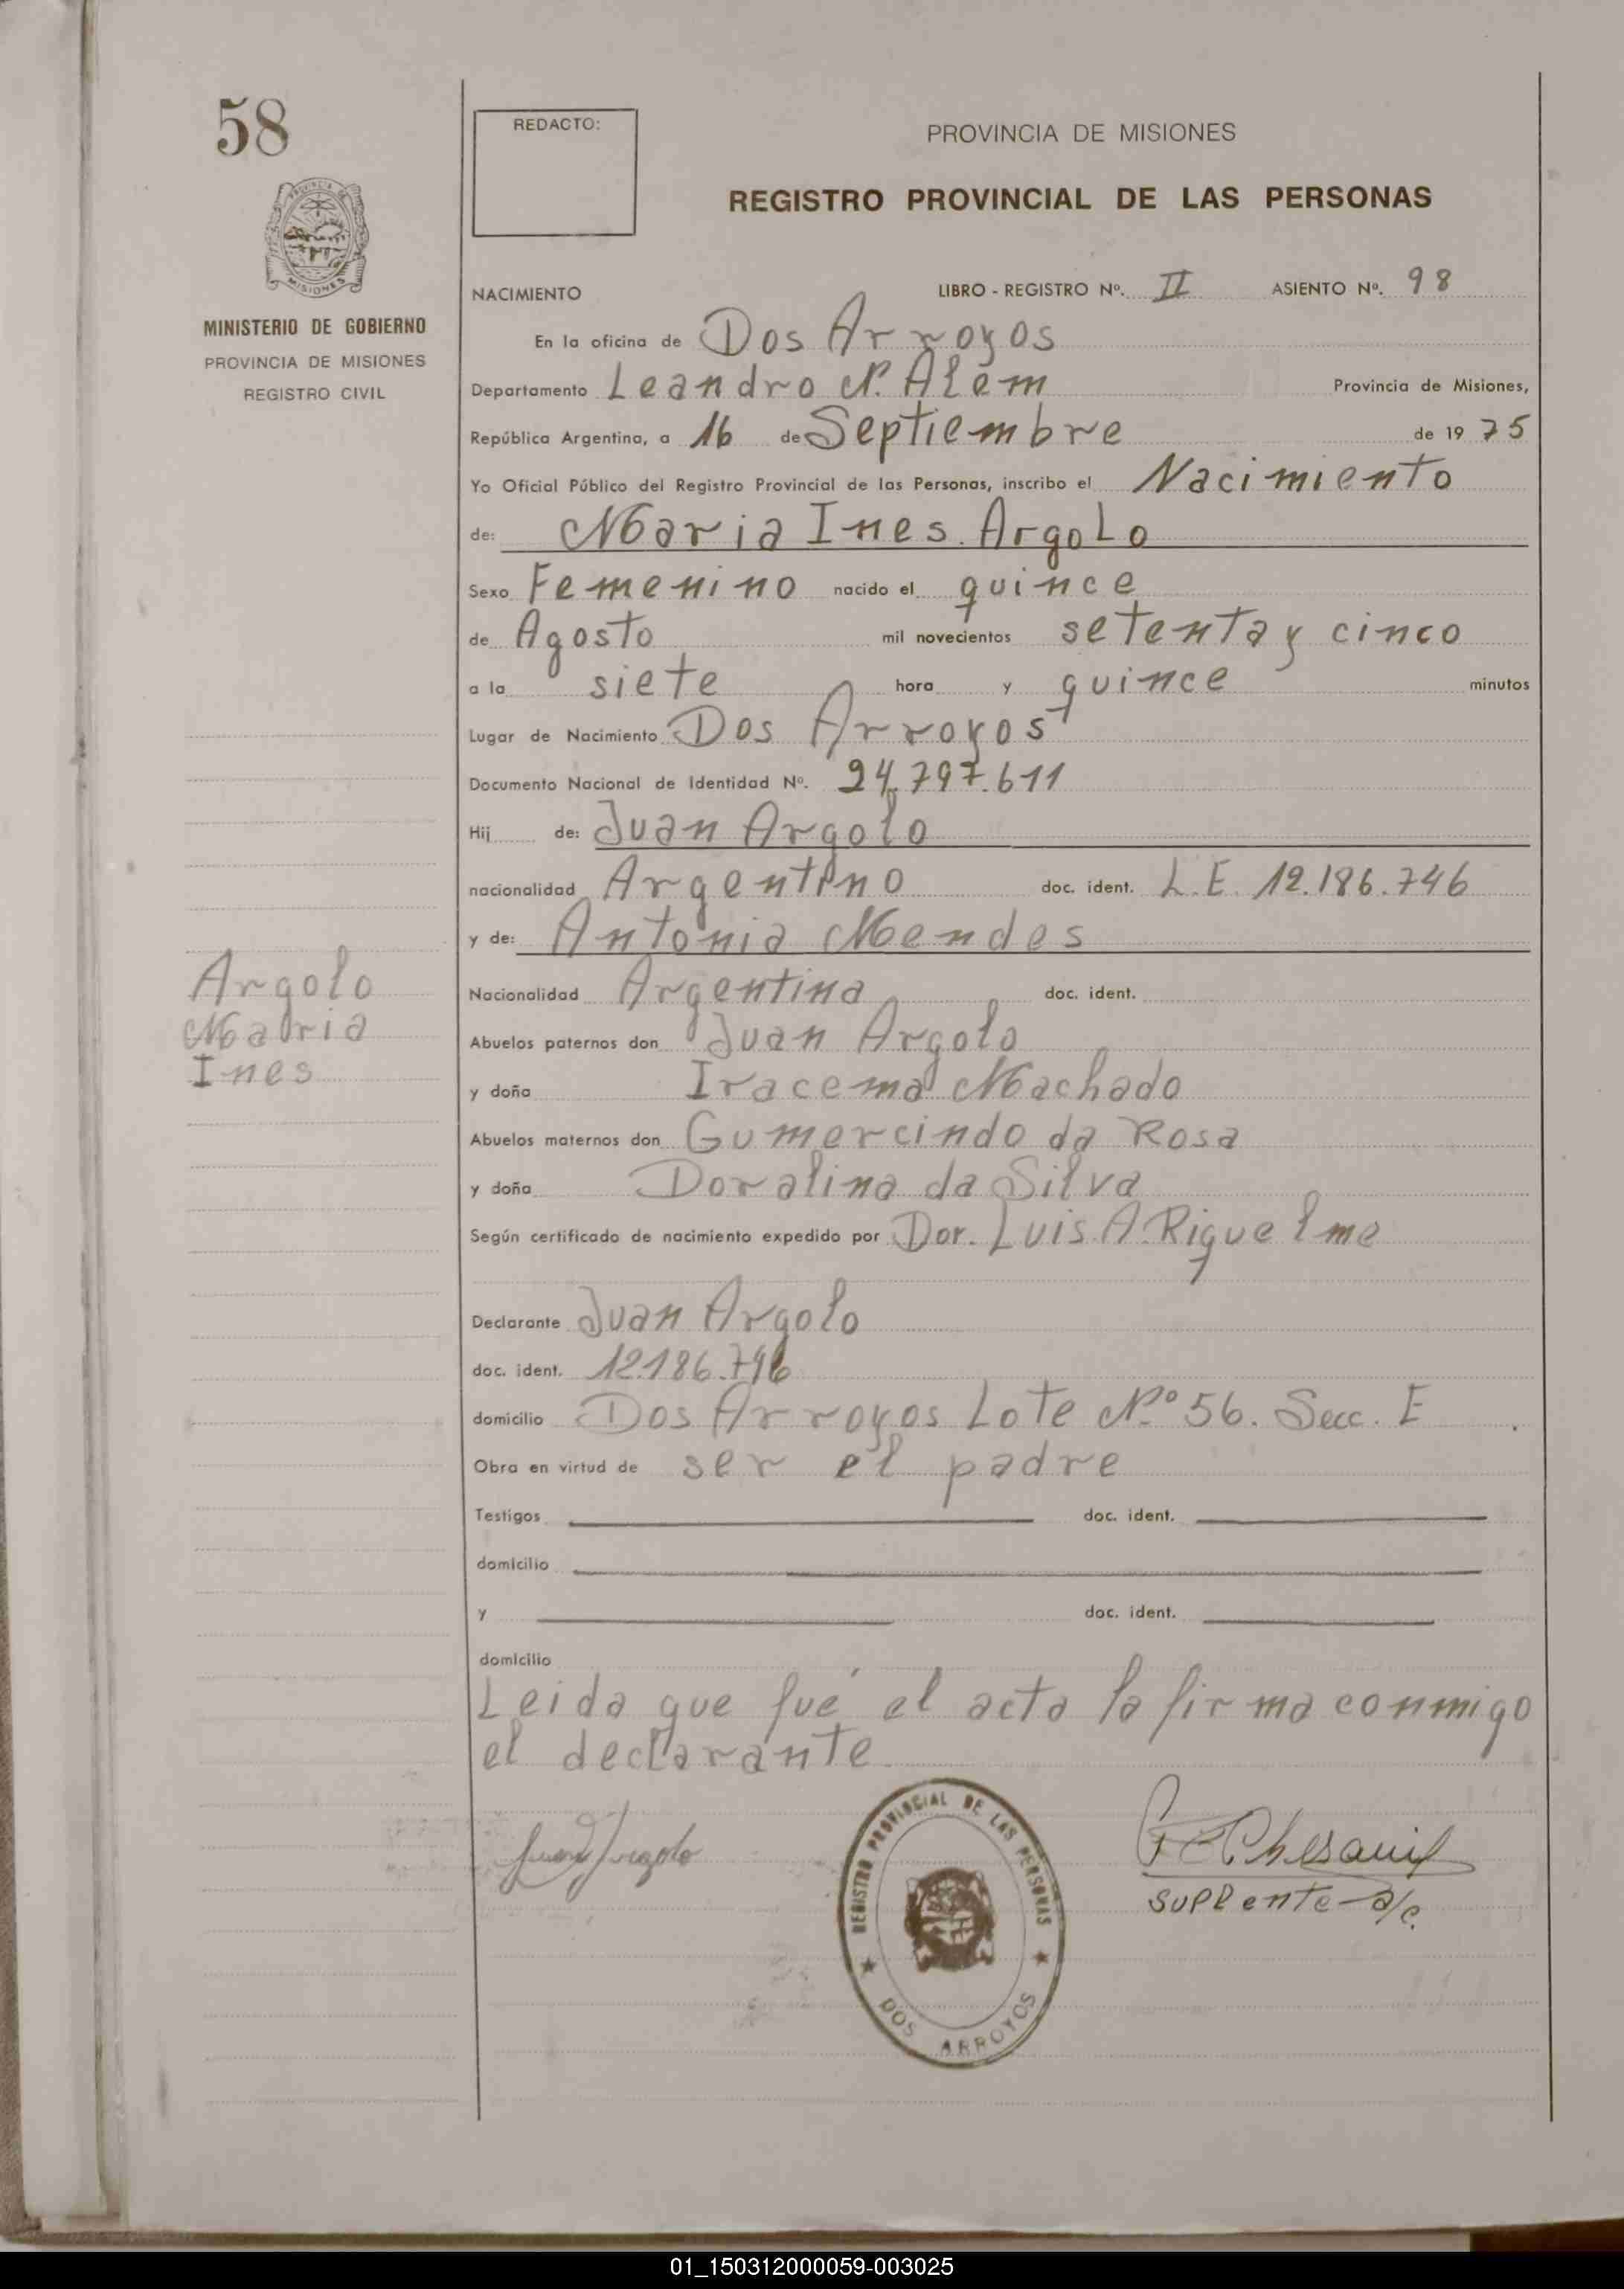 58
REDACTO:
PROVINCIA DE MISIONES
REGISTRO PROVINCIAL DE LAS PERSONAS
PROVINCIA DE
MISIONES
MINISTERIO DE GOBIERNO
PROVINCIA DE MISIONES
REGISTRO CIVIL
NACIMIENTO LIBRO - REGISTRO Nº. II ASIENTO Nº. 98
En la oficina de Dos Arroyos
Departamento Leandro N. Alem Provincia de Misiones,
República Argentina, a 16 de Septiembre de 19 75
Yo Oficial Público del Registro Provincial de las Personas, inscribo el Nacimiento
de: Maria Ines Argolo
Sexo Femenino nacido el quince
de Agosto mil novecientos setenta y cinco
a la siete hora y quince minutos
Lugar de Nacimiento Dos Arroyos
Documento Nacional de Identidad Nº. 24.797.611
Hij de: Juan Argolo
nacionalidad Argentino doc. ident. L.E. 12.186.746
y de: Antonia Mendes
Nacionalidad Argentina doc. ident.
Abuelos paternos don Juan Argolo
y doña Iracema Machado
Abuelos maternos don Gumercindo da Rosa
y doña Doralina da Silva
Según certificado de nacimiento expedido por Dor. Luis A. Riquelme
Declarante Juan Argolo
doc. ident. 12.186.746
domicilio Dos Arroyos Lote Nº 56. Secc. E
Obra en virtud de ser el padre
Testigos doc. ident.
domicilio
y doc. ident.
domicilio
Leida que fué el acta la firma conmigo
el declarante
Argolo
Maria
Ines
Juan Argolo
REGISTRO PROVINCIAL DE LAS PERSONAS
DOS ARROYOS
suplente a/c.
01_150312000059-003025